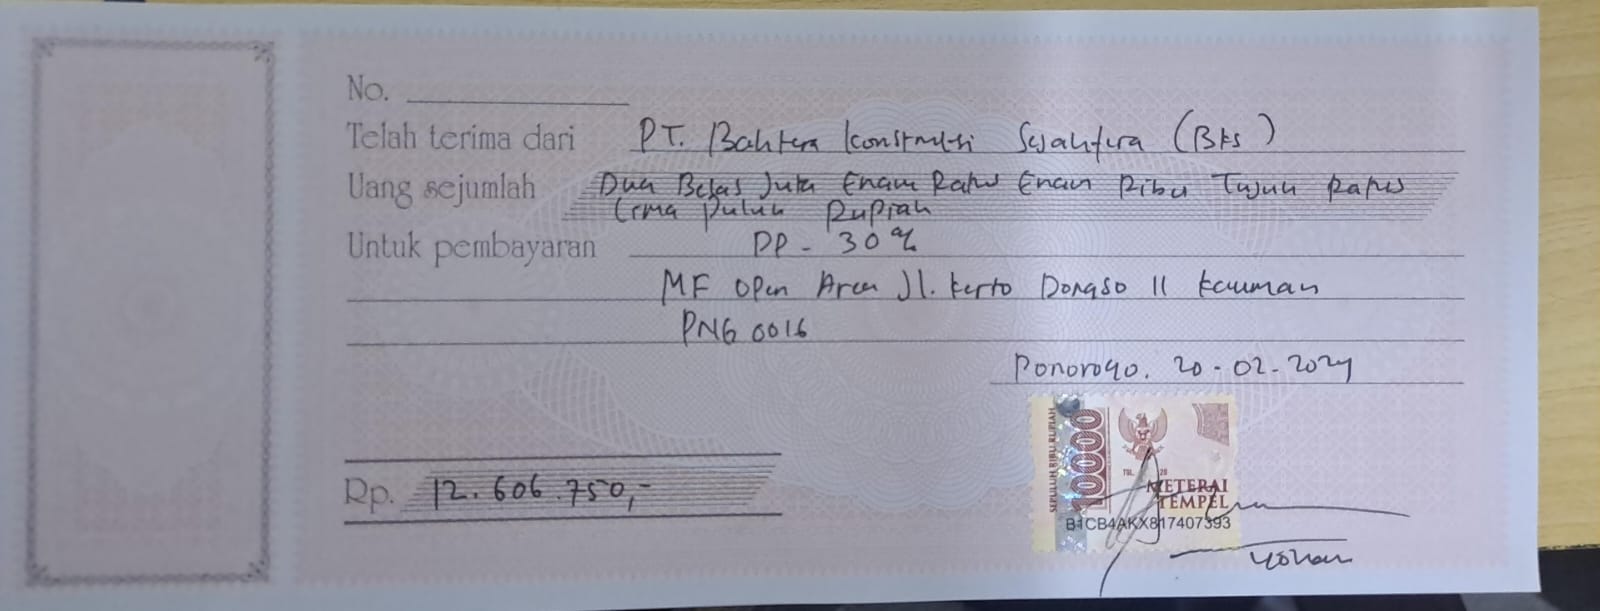 No.
Telah terima dari PT. Bahtera Konstruksi Sejahtera (BKS)
Uang sejumlah Dua Belas Juta Enam Ratus Enam Ribu Tujuh Ratus
Lima Puluh Rupiah
Untuk pembayaran DP - 30%
MF Open Area Jl. Kerto Dongso II Kauman
PNG 0016
Ponorogo. 20-02-2024
SEPULUH RIBU RUPIAH
10000
TGL. 20
METERAI
TEMPEL
B1CB4AKX817407393
Rp. 12.606.750,-
Yohan